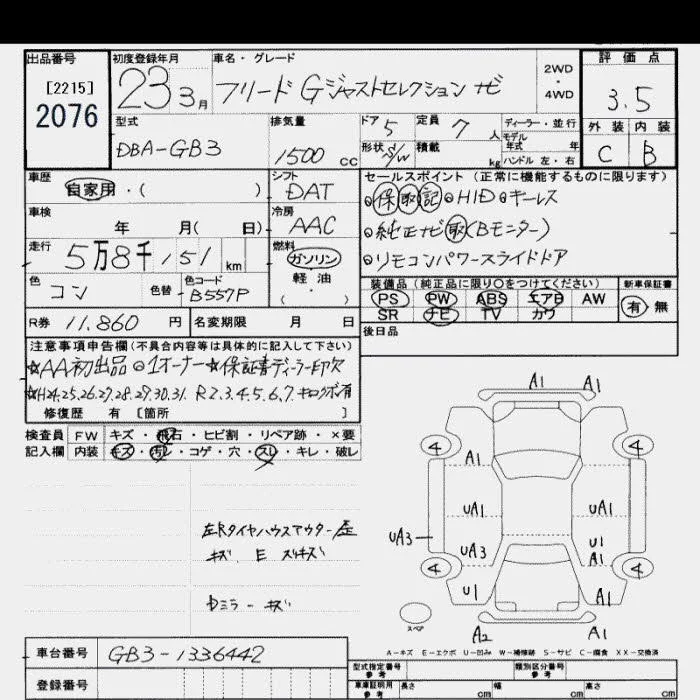 出品番号 初度登録年月 車名・グレード 2WD・4WD 評価点
[2215]
2076 23 3月 フリード Gジャストセレクション ナビ 3.5
型式 DBA-GB3 排気量 1500 cc ドア 5 定員 7 人 ディーラー・並行
形状 S/W 積載 kg モデル年式 年 ハンドル 左・右
外装 C 内装 B
車歴 自家用・( ) シフト DAT
車検 年 月( 日) 冷房 AAC
走行 5万8千151 km 燃料 ガソリン 軽油 ( ・ )
色 コン 色替 色コード B557P
R券 11.860 円 名変期限 月 日
セールスポイント (正常に機能するものに限ります)
⊙保取記⊙HID⊙キーレス
⊙純正ナビ取(Bモニター)
⊙リモコンパワースライドドア
装備品 (純正品に限り○をつけてください) 新車保証書
PS PW ABS エアB AW 有・無
SR ナビ TV カワ
後日品
注意事項申告欄(不具合内容等は具体的に記入して下さい)
☆AA初出品⊙1オーナー☆保証書ディーラー印欠
☆H24.25.26.27.28.29.30.31. R2.3.4.5.6.7. キロクボ有
修復歴 有 [箇所 ]
検査員 FW キズ・飛石・ヒビ割・リペア跡・×要
記入欄 内装 キズ・汚レ・コゲ・穴・スレ・キレ・破レ
左Rタイヤハウスアウター
キズ. E スリキズ
Dミラーキズ
A1 A1
4 4
A1
UA1 UA1
UA3 UA3 U1 A1
4 4
U1 A1
スペア A2 A1
A-キズ E-エクボ U-凹み W-補修跡 S-サビ C-腐食 XX-交換済
車台番号 GB3-1336442
登録番号
型式指定番号 参考 類別区分番号 参考
車庫証明用 参考 長さ cm 幅 cm 高さ cm